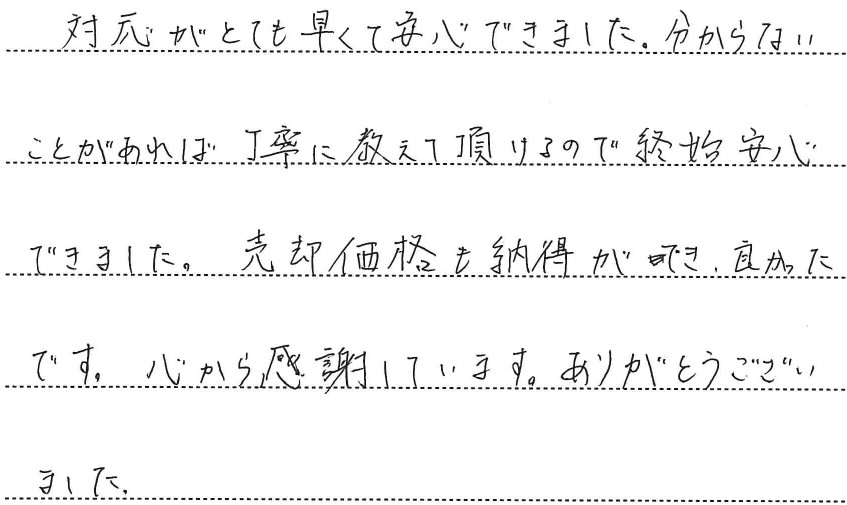 対応がとても早くて安心できました。分からない
ことがあれば丁寧に教えて頂けるので終始安心
できました。売却価格も納得ができ、良かった
です。心から感謝しています。ありがとうござい
ました。